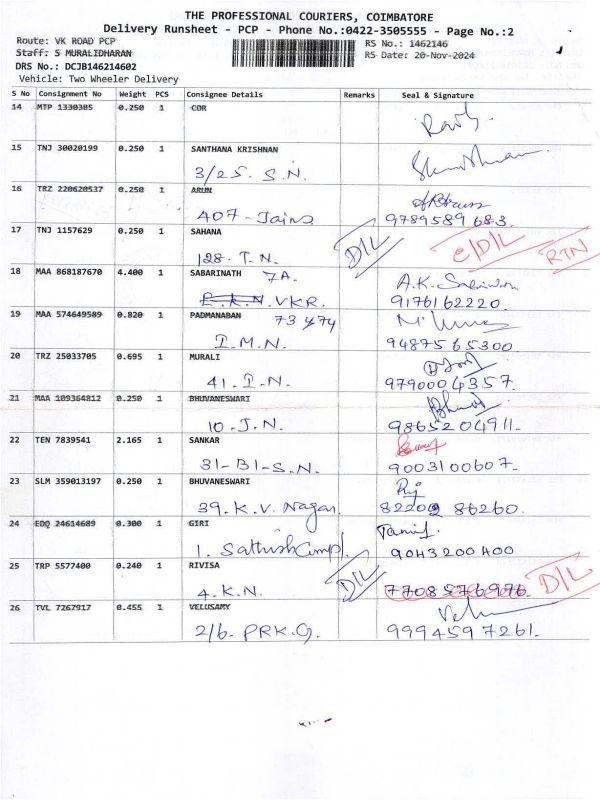 THE PROFESSIONAL COURIERS, COIMBATORE
Delivery Runsheet - PCP - Phone No.:0422-3505555 - Page No.:2
Route: VK ROAD PCP RS No.: 1462146
Staff: S MURALIDHARAN RS Date: 20-Nov-2024
DRS No.: DCJB146214602
Vehicle: Two Wheeler Delivery
S No Consignment No Weight PCS Consignee Details Remarks Seal & Signature
14 MTP 1330305 0.250 1 COR
15 TNJ 30020199 0.250 1 SANTHANA KRISHNAN
3/25. S.N.
16 TRZ 220620537 0.250 1 ARUN
407-Jains 9789589683.
17 TNJ 1157629 0.250 1 SAHANA D/L C/D/L RTN
128. T.N.
18 MAA 868187670 4.400 1 SABARINATH 7A.
VKR. 9176162220.
19 MAA 574649589 0.820 1 PADMANABAN 73 y 74
I.M.N. 9487565300.
20 TRZ 25033705 0.695 1 MURALI
41. I.N. 9790004357.
21 MAA 109364812 0.250 1 BHUVANESWARI
10. J.N. 9865204911.
22 TEN 7839541 2.165 1 SANKAR
31-B1-S.N. 9003100607.
23 SLM 359013197 0.250 1 BHUVANESWARI
39. K.V. Nagar. 86260.
24 EDQ 24614689 0.300 1 GIRI
1. 9043200400
25 TRP 5577400 0.240 1 RIVISA D/L D/L
4. K.N. 7708576976.
26 TVL 7267917 0.455 1 VELUSAMY
2/6. PRK.G. 9994597261.